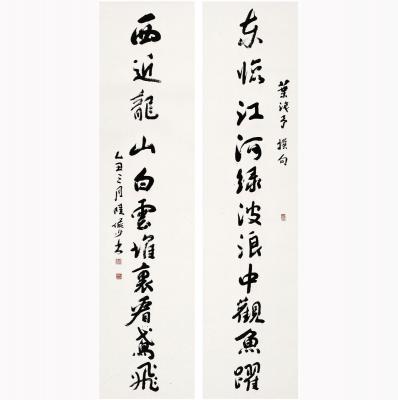 东临江河绿波浪中觀魚躍
葉潞子 撰句
西近龍山白雲堆裏看鳶飛
乙丑三月陸儼少書